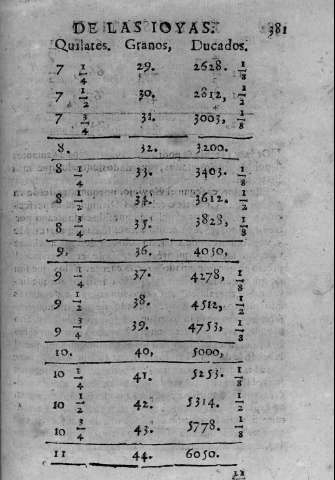 DE LAS IOYAS. 381
Quilates. Granos, Ducados.
7 1/4 29. 2628. 1/8
7 1/2 30. 2812, 1/8
7 3/4 31. 3003, 1/8
8. 32. 3200.
8 1/4 33. 3403. 1/8
8 1/2 34. 3612. 1/8
8 3/4 35. 3828, 1/8
9. 36. 4050,
9 1/4 37. 4278, 1/8
9 1/2 38. 4512, 1/8
9 3/4 39. 4753, 1/8
10. 40, 5000,
10 1/4 41. 5253. 1/8
10 1/2 42. 5314. 1/8
10 3/4 43. 5778. 1/8
11 44. 6050.